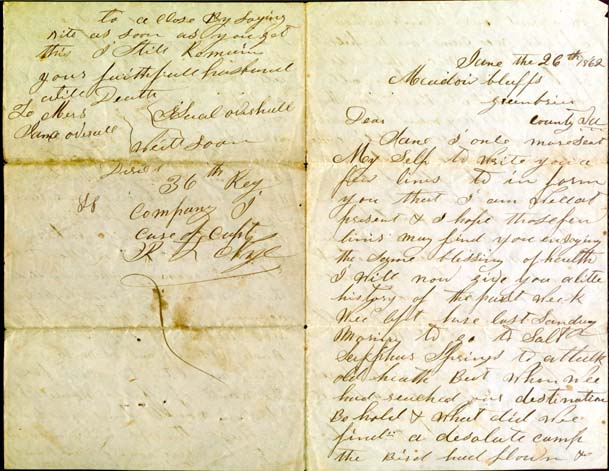 to a close By Saying
rite as soon as you get
this I Still Remain
your faithfull husband
until Death
To Mrs
Jane overall
Isral overhall
writ Soon
Direct
36th Reg
Company I
care of Capt
June the 26th 1862
Meadow bluffs
greenbrier
county Va
Dear
Jane I one more Seat
My Self to write you a
few lines to in form
you that I am well at
present & I hope those few
lines may find you enjoying
the Same blessing of health
I will now give you a little
history of the past week
Wee left hure last Sunday
Morning to go to Salt
Sulphur Springs to attack
old heath But when wee
had reached our destination
Be hold & what did wee
find a desolate camp
the Bird had flown &